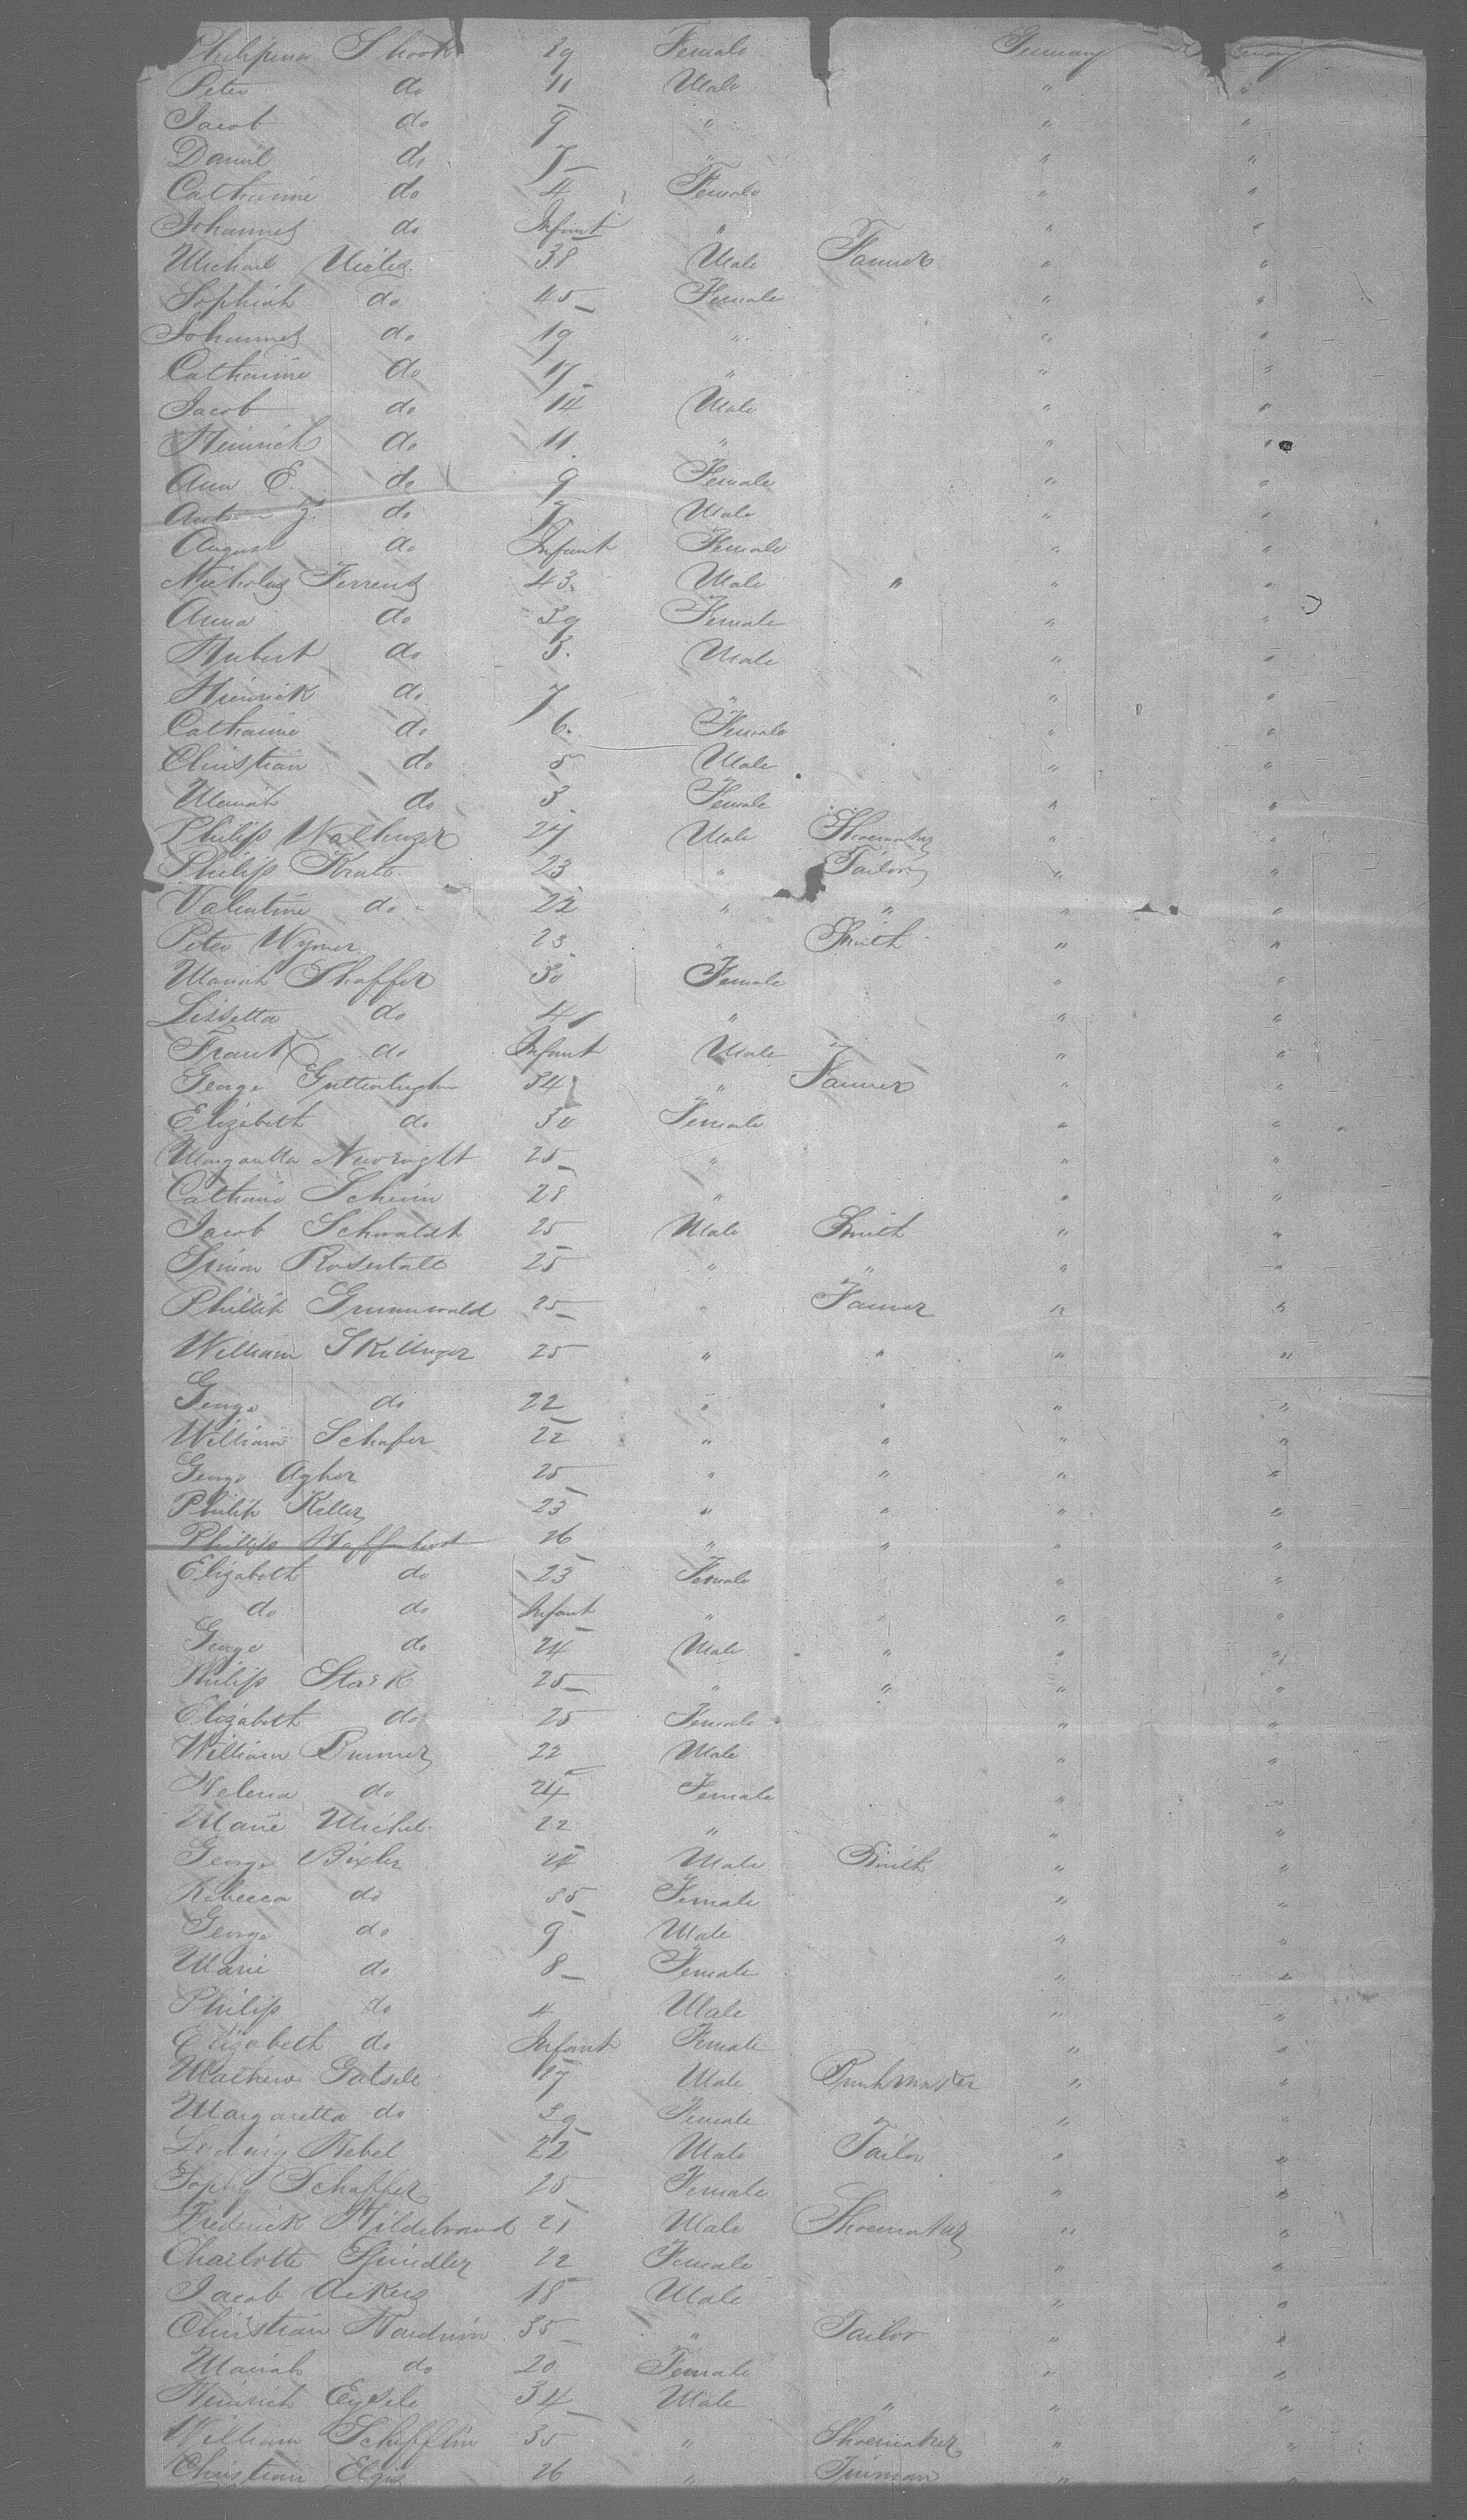 Philipina Shook 29 Female Germany
Peter do 11 Male " "
Jacob do 9 " " "
Daniel do 7 " " "
Catharine do 4 Female " "
Johannes do Infant " " "
Michael 38 Male Farmer " "
Sophiah do 45 Female " "
Johannes do 19 " " "
Catharine do 17 " " "
Jacob do 14 Male " "
Heinrich do 11 " " "
Ann E. do 9 Female " "
do 7 Male " "
August do Infant Female " "
Nicholas Ferrens 43 Male " " "
Anna do 39 Female " "
Hubert do 3. Male " "
Heinrick do 7 " " "
Catharine do 6. Female " "
Christian do 5 Male " "
Mariah do 3 Female " "
Philip 27 Male Shoemaker " "
Philip Kratz 23 " Tailor " "
Valentine do 22 " " " "
Peter Wymer 23 " Smith " "
Mariah Shaffer 30 Female " "
Lissetta do 4 " " "
Frank do Infant Male " "
George 34 " Farmer " "
Elizabeth do 30 Female " "
Margaretta 25 " " "
Catharine 28 " " "
Jacob Schwaldt 25 Male Smith " "
Simon 25 " " " "
Phillip Grunnwald 25 " Farmer " "
William Skillinger 25 " " " "
George do 22 " " " "
William Schafer 22 " " " "
George 25 " " " "
Philip Keller 23 " " " "
Philip 26 " " " "
Elizabeth do 23 Female " "
do do Infant " " "
George do 24 Male " " "
Philip Stark 25 " " " "
Elizabeth do 25 Female " "
William 22 Male " "
Helena do 24 Female " "
Marie Michel 22 " " "
George Bixler 24 Male Smith " "
Rebecca do 35 Female " "
George do 9 Male " "
Marie do 8 Female " "
Philip do 4 Male " "
Elizabeth do Infant Female " "
Mathew 17 Male " "
Margaretta do 39 Female " "
Ludwig Hebel 22 Male Tailor " "
Sophy Schaffer 25 Female " "
Frederick Hildebrand 21 Male Shoemaker " "
Charlotte Spindler 22 Female " "
Jacob 18 Male " "
Christian 35 " Tailor " "
Mariah do 20 Female " "
Heinrich Eysele 34 Male " " "
William Schifflin 35 " Shoemaker " "
Christian 26 " Tinman " "